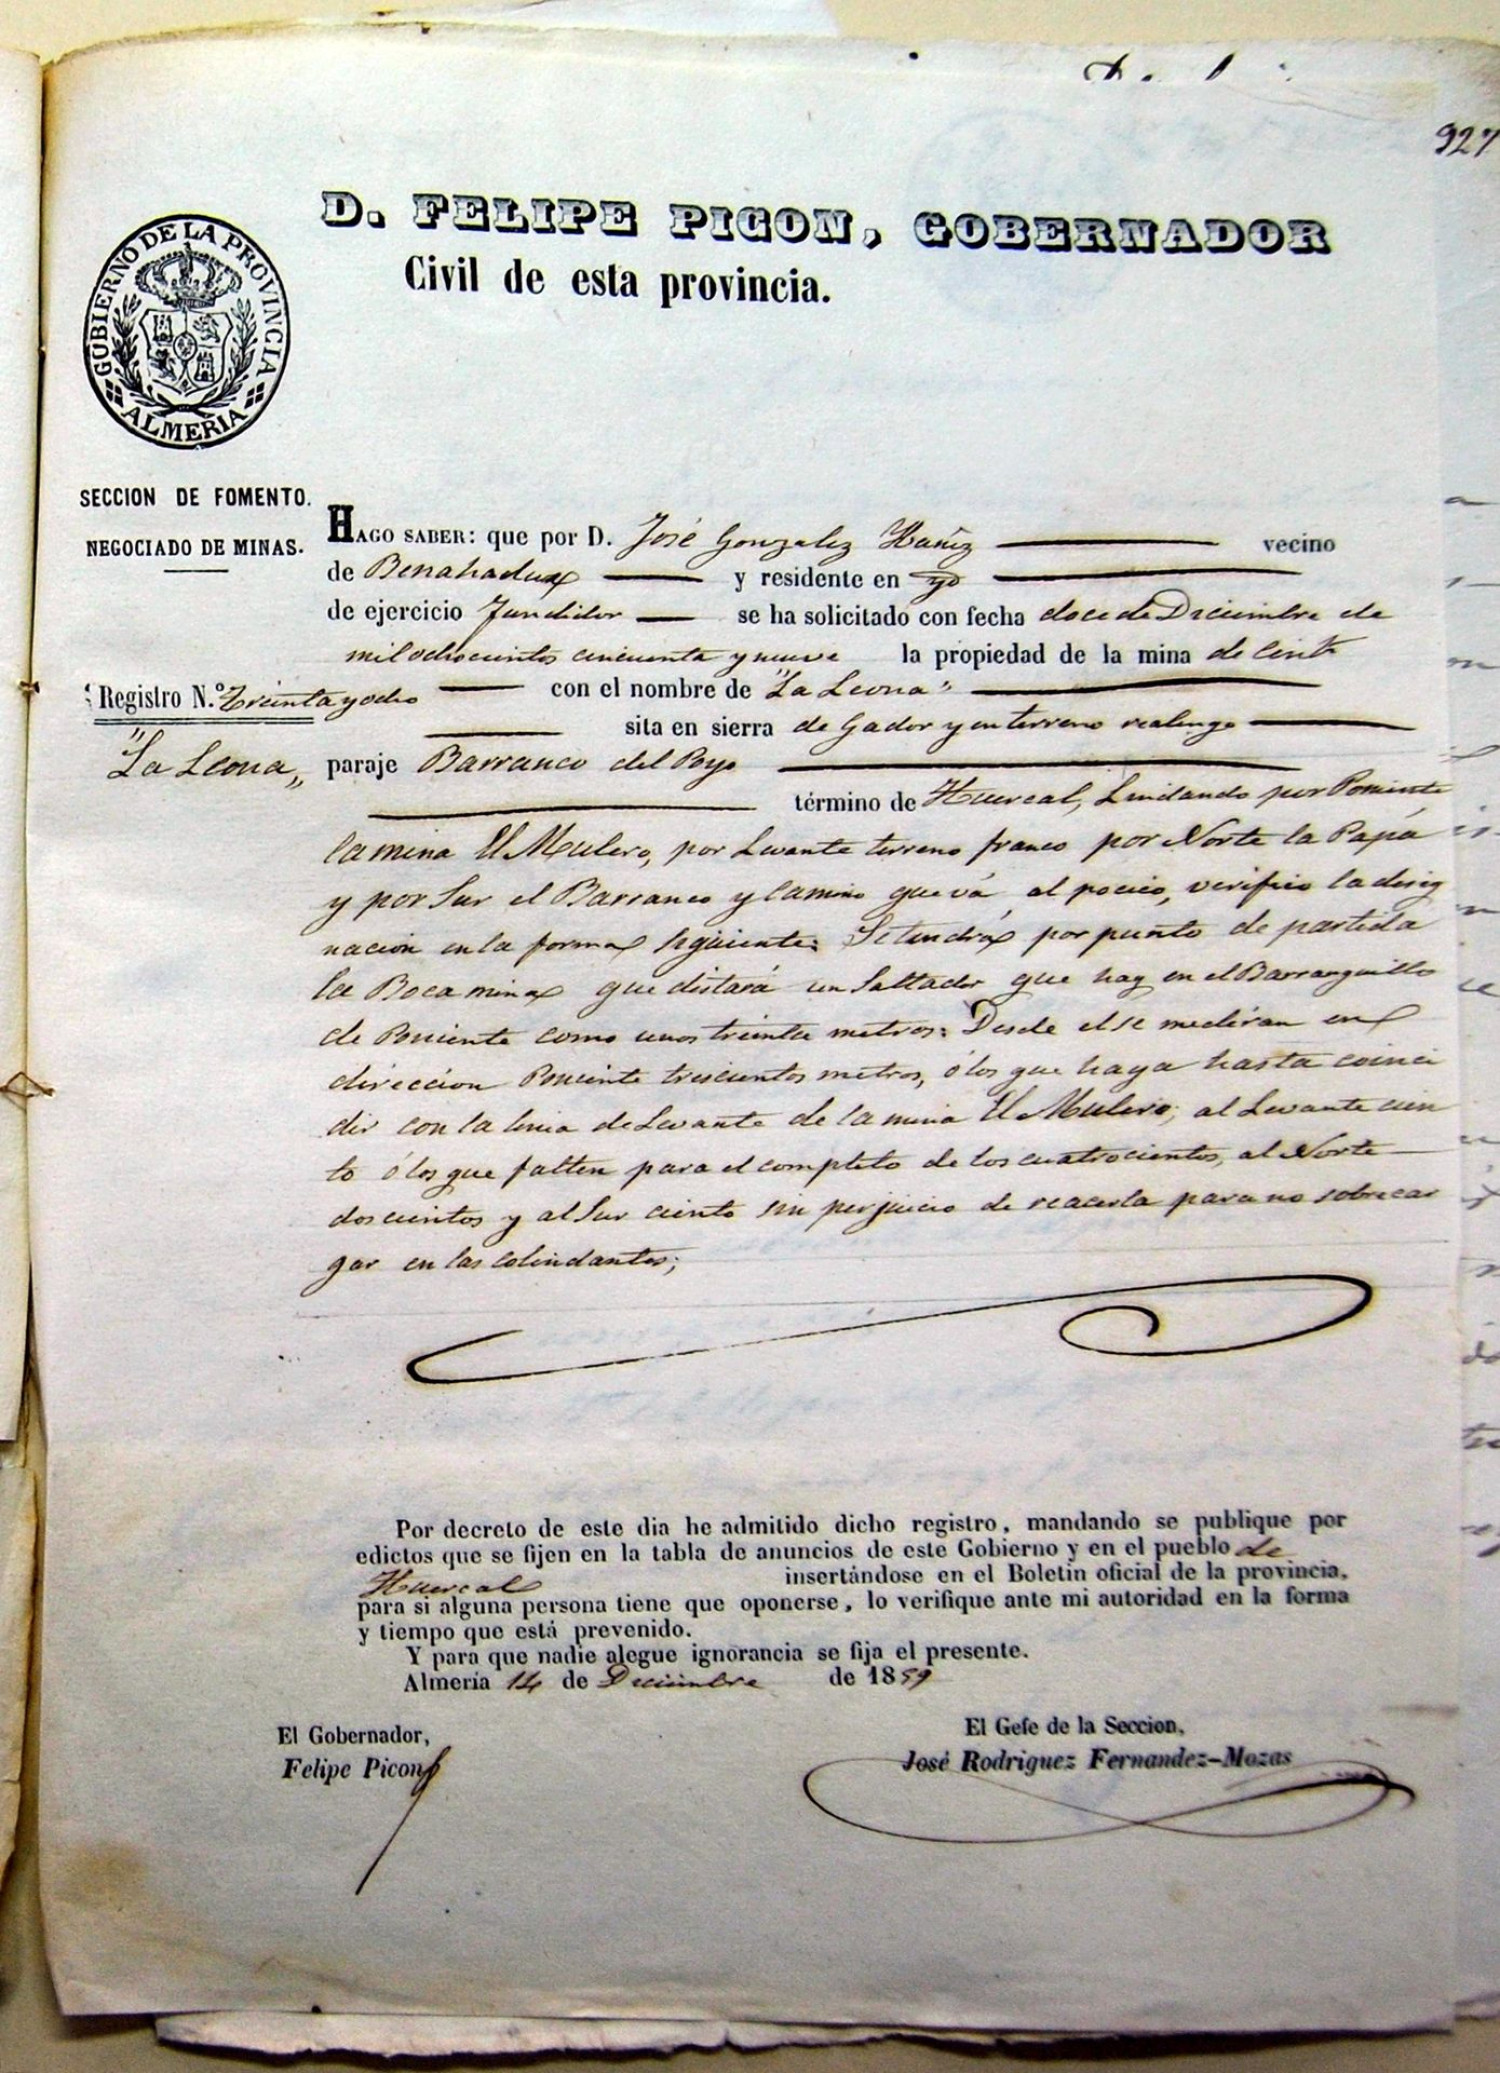 927
D. FELIPE PICON, GOBERNADOR
Civil de esta provincia.
GOBIERNO DE LA PROVINCIA
ALMERIA
SECCION DE FOMENTO.
NEGOCIADO DE MINAS.
HAGO SABER: que por D. José Gonzalez Ybañez vecino
de Benahadux y residente en yd
de ejercicio fundidor se ha solicitado con fecha doce de Diciembre de
mil ochocientos cincuenta y nueve la propiedad de la mina de
Registro N.º Treinta y ocho con el nombre de "La Leona"
sita en sierra de Gador y en terreno realengo
"La Leona" paraje Barranco del Poyo
término de Huercal, Lindando por Poniente
la mina El Mulero, por Levante terreno franco por Norte la Papa
y por Sur el Barranco y camino que vá al pocico, verifico la desig
nacion en la forma siguiente: Se tendrá por punto de partida
la Boca mina que distará un Saltador que hay en el Barranquillo
de Poniente como unos treinta metros: Desde el se mediran en
direccion Poniente trescientos metros, ó los que haya hasta coinci
dir con la linea de Levante de la mina El Mulero; al Levante cien
to ó los que falten para el completo de los cuatrocientos, al Norte
doscientos y al Sur ciento sin perjuicio de reacerla para no sobrecar
gar en las colindantes;
Por decreto de este dia he admitido dicho registro, mandando se publique por
edictos que se fijen en la tabla de anuncios de este Gobierno y en el pueblo de
Huercal insertándose en el Boletin oficial de la provincia,
para si alguna persona tiene que oponerse, lo verifique ante mi autoridad en la forma
y tiempo que está prevenido.
Y para que nadie alegue ignorancia se fija el presente.
Almería 14 de Diciembre de 1859
El Gobernador,
Felipe Picon
El Gefe de la Seccion,
José Rodriguez Fernandez-Mozas